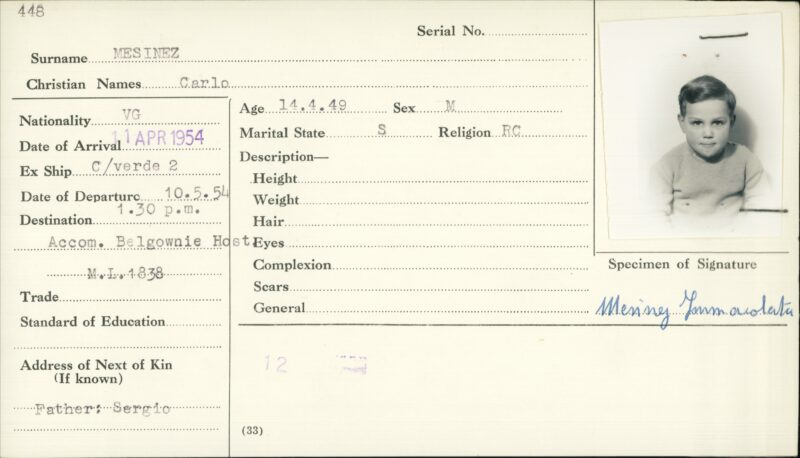 448
Serial No.
Surname MESINEZ
Christian Names Carlo
Nationality VG
Date of Arrival 11 APR 1954
Ex Ship C/verde 2
Date of Departure 10.5.54
1.30 p.m.
Destination
Accom. Belgownie Host.
M.L.1838
Trade
Standard of Education
Address of Next of Kin
(If known)
Father: Sergio
Age 14.4.49 Sex M
Marital State S Religion RC
Description—
Height
Weight
Hair
Eyes
Complexion
Scars
General
12
(33)
Specimen of Signature
Mesinez Immacolata